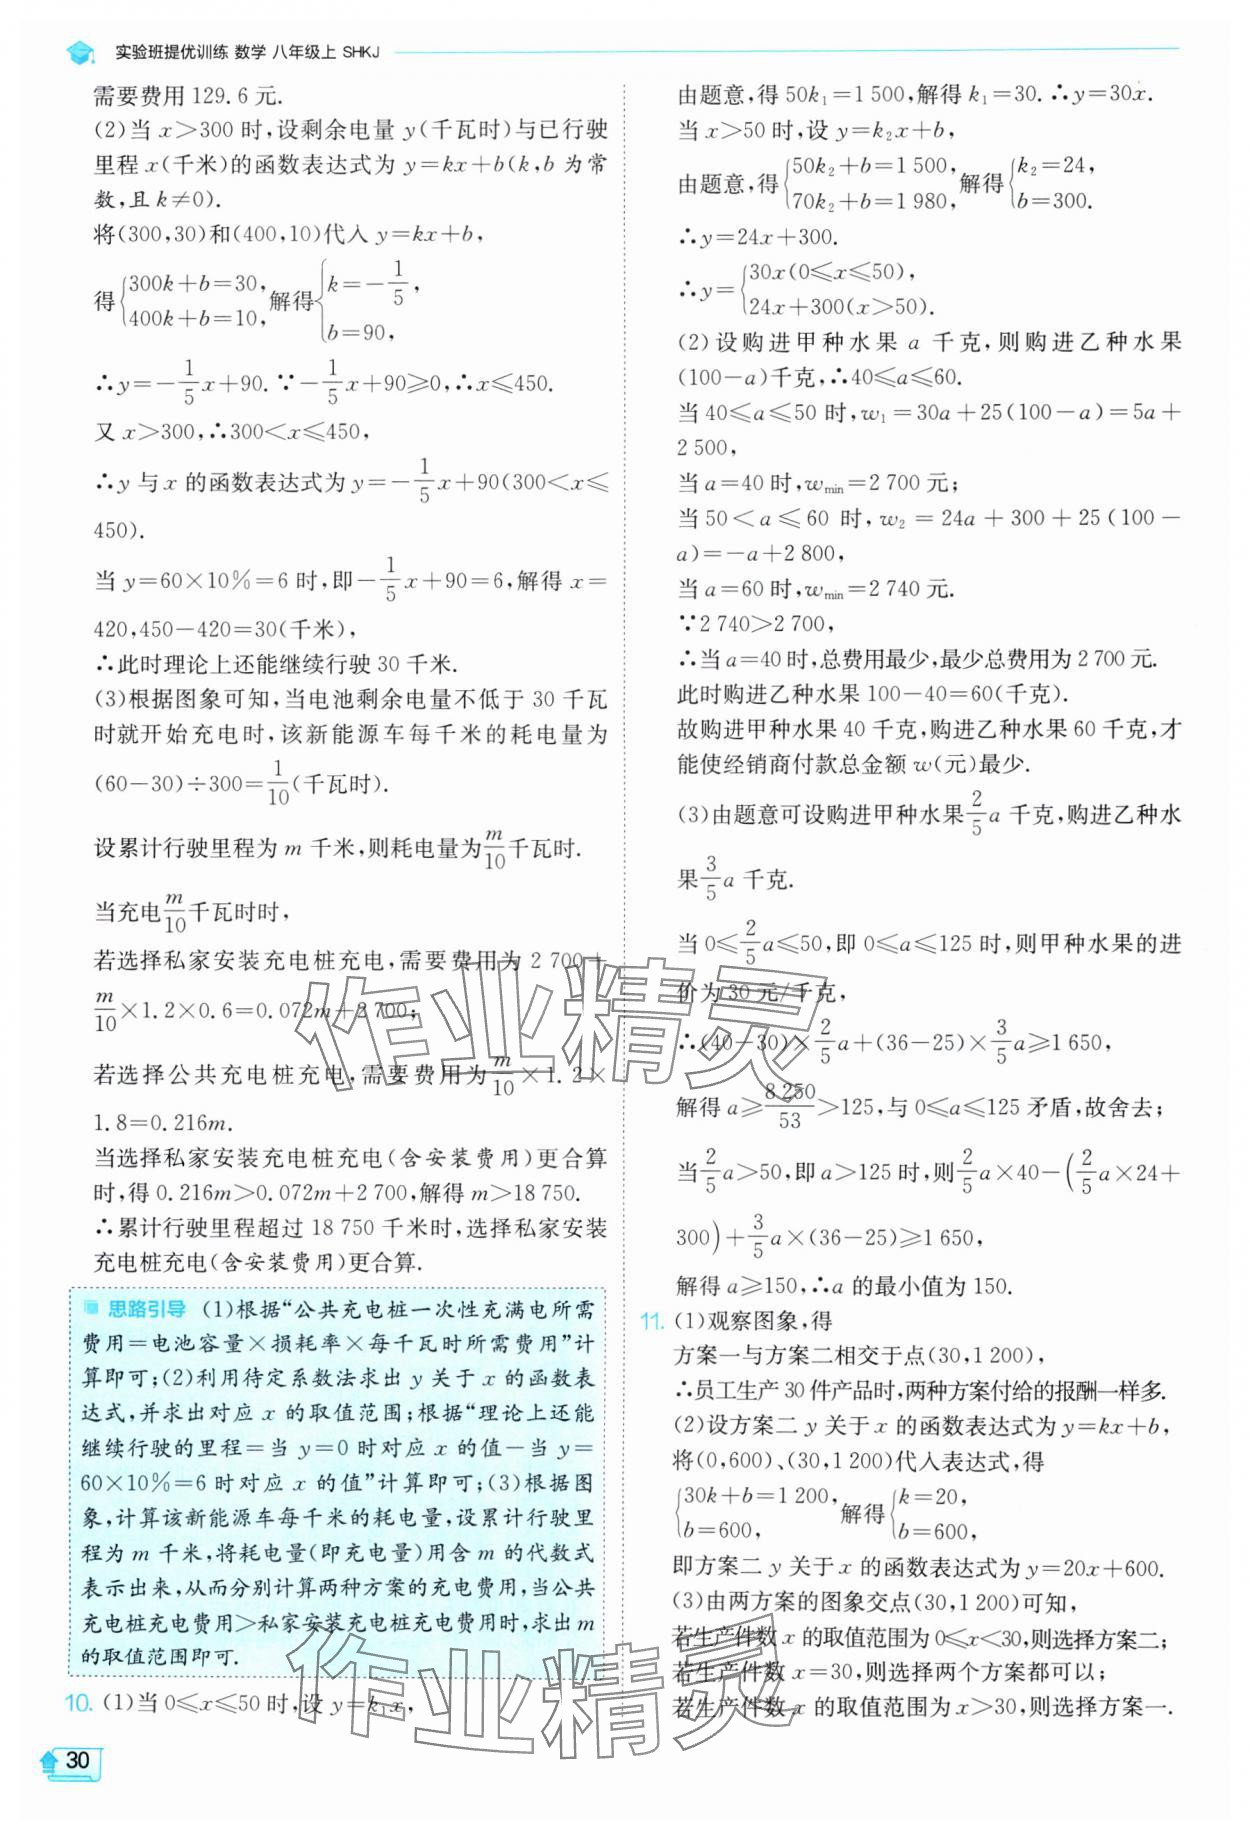 实验班提优训练 数学 八年级上 SHKJ
需要费用 129.6 元.
(2)当 x>300 时,设剩余电量 y(千瓦时)与已行驶
里程 x(千米)的函数表达式为 y=kx+b(k,b 为常
数,且 k≠0).
将(300,30)和(400,10)代入 y=kx+b,
得{300k+b=30, 400k+b=10, 解得{k=-1/5, b=90,
∴y=-1/5x+90.∵-1/5x+90≥0,∴x≤450.
又 x>300,∴300<x≤450,
∴y 与 x 的函数表达式为 y=-1/5x+90(300<x≤
450).
当 y=60×10%=6 时,即-1/5x+90=6,解得 x=
420,450-420=30(千米),
∴此时理论上还能继续行驶 30 千米.
(3)根据图象可知,当电池剩余电量不低于 30 千瓦
时就开始充电时,该新能源车每千米的耗电量为
(60-30)÷300=1/10(千瓦时).
设累计行驶里程为 m 千米,则耗电量为m/10千瓦时.
当充电m/10千瓦时时,
若选择私家安装充电桩充电,需要费用为 2 700+
m/10×1.2×0.6=0.072m+2 700;
若选择公共充电桩充电,需要费用为m/10×1.2×
1.8=0.216m.
当选择私家安装充电桩充电(含安装费用)更合算
时,得 0.216m>0.072m+2 700,解得 m>18 750.
∴累计行驶里程超过 18 750 千米时,选择私家安装
充电桩充电(含安装费用)更合算.
思路引导 (1)根据“公共充电桩一次性充满电所需
费用=电池容量×损耗率×每千瓦时所需费用”计
算即可;(2)利用待定系数法求出 y 关于 x 的函数表
达式,并求出对应 x 的取值范围;根据“理论上还能
继续行驶的里程=当 y=0 时对应 x 的值-当 y=
60×10%=6 时对应 x 的值”计算即可;(3)根据图
象,计算该新能源车每千米的耗电量,设累计行驶里
程为 m 千米,将耗电量(即充电量)用含 m 的代数式
表示出来,从而分别计算两种方案的充电费用,当公共
充电桩充电费用>私家安装充电桩充电费用时,求出 m
的取值范围即可.
10. (1)当 0≤x≤50 时,设 y=k₁x,
由题意,得 50k₁=1 500,解得 k₁=30.∴y=30x.
当 x>50 时,设 y=k₂x+b,
由题意,得{50k₂+b=1 500, 70k₂+b=1 980, 解得{k₂=24, b=300.
∴y=24x+300.
∴y={30x(0≤x≤50), 24x+300(x>50).
(2)设购进甲种水果 a 千克,则购进乙种水果
(100-a)千克,∴40≤a≤60.
当 40≤a≤50 时,w₁=30a+25(100-a)=5a+
2 500,
当 a=40 时,wmin=2 700 元;
当 50<a≤60 时,w₂=24a+300+25(100-
a)=-a+2 800,
当 a=60 时,wmin=2 740 元.
∵2 740>2 700,
∴当 a=40 时,总费用最少,最少总费用为 2 700 元.
此时购进乙种水果 100-40=60(千克).
故购进甲种水果 40 千克,购进乙种水果 60 千克,才
能使经销商付款总金额 w(元)最少.
(3)由题意可设购进甲种水果2/5a 千克,购进乙种水
果3/5a 千克.
当 0≤2/5a≤50,即 0≤a≤125 时,则甲种水果的进
价为 30 元/千克,
∴(40-30)×2/5a+(36-25)×3/5a≥1 650,
解得 a≥8 250/53>125,与 0≤a≤125 矛盾,故舍去;
当2/5a>50,即 a>125 时,则2/5a×40-(2/5a×24+
300)+3/5a×(36-25)≥1 650,
解得 a≥150,∴a 的最小值为 150.
11. (1)观察图象,得
方案一与方案二相交于点(30,1 200),
∴员工生产 30 件产品时,两种方案付给的报酬一样多.
(2)设方案二 y 关于 x 的函数表达式为 y=kx+b,
将(0,600)、(30,1 200)代入表达式,得
{30k+b=1 200, b=600, 解得{k=20, b=600,
即方案二 y 关于 x 的函数表达式为 y=20x+600.
(3)由两方案的图象交点(30,1 200)可知,
若生产件数 x 的取值范围为 0≤x<30,则选择方案二;
若生产件数 x=30,则选择两个方案都可以;
若生产件数 x 的取值范围为 x>30,则选择方案一.
作业精灵
作业精灵
30